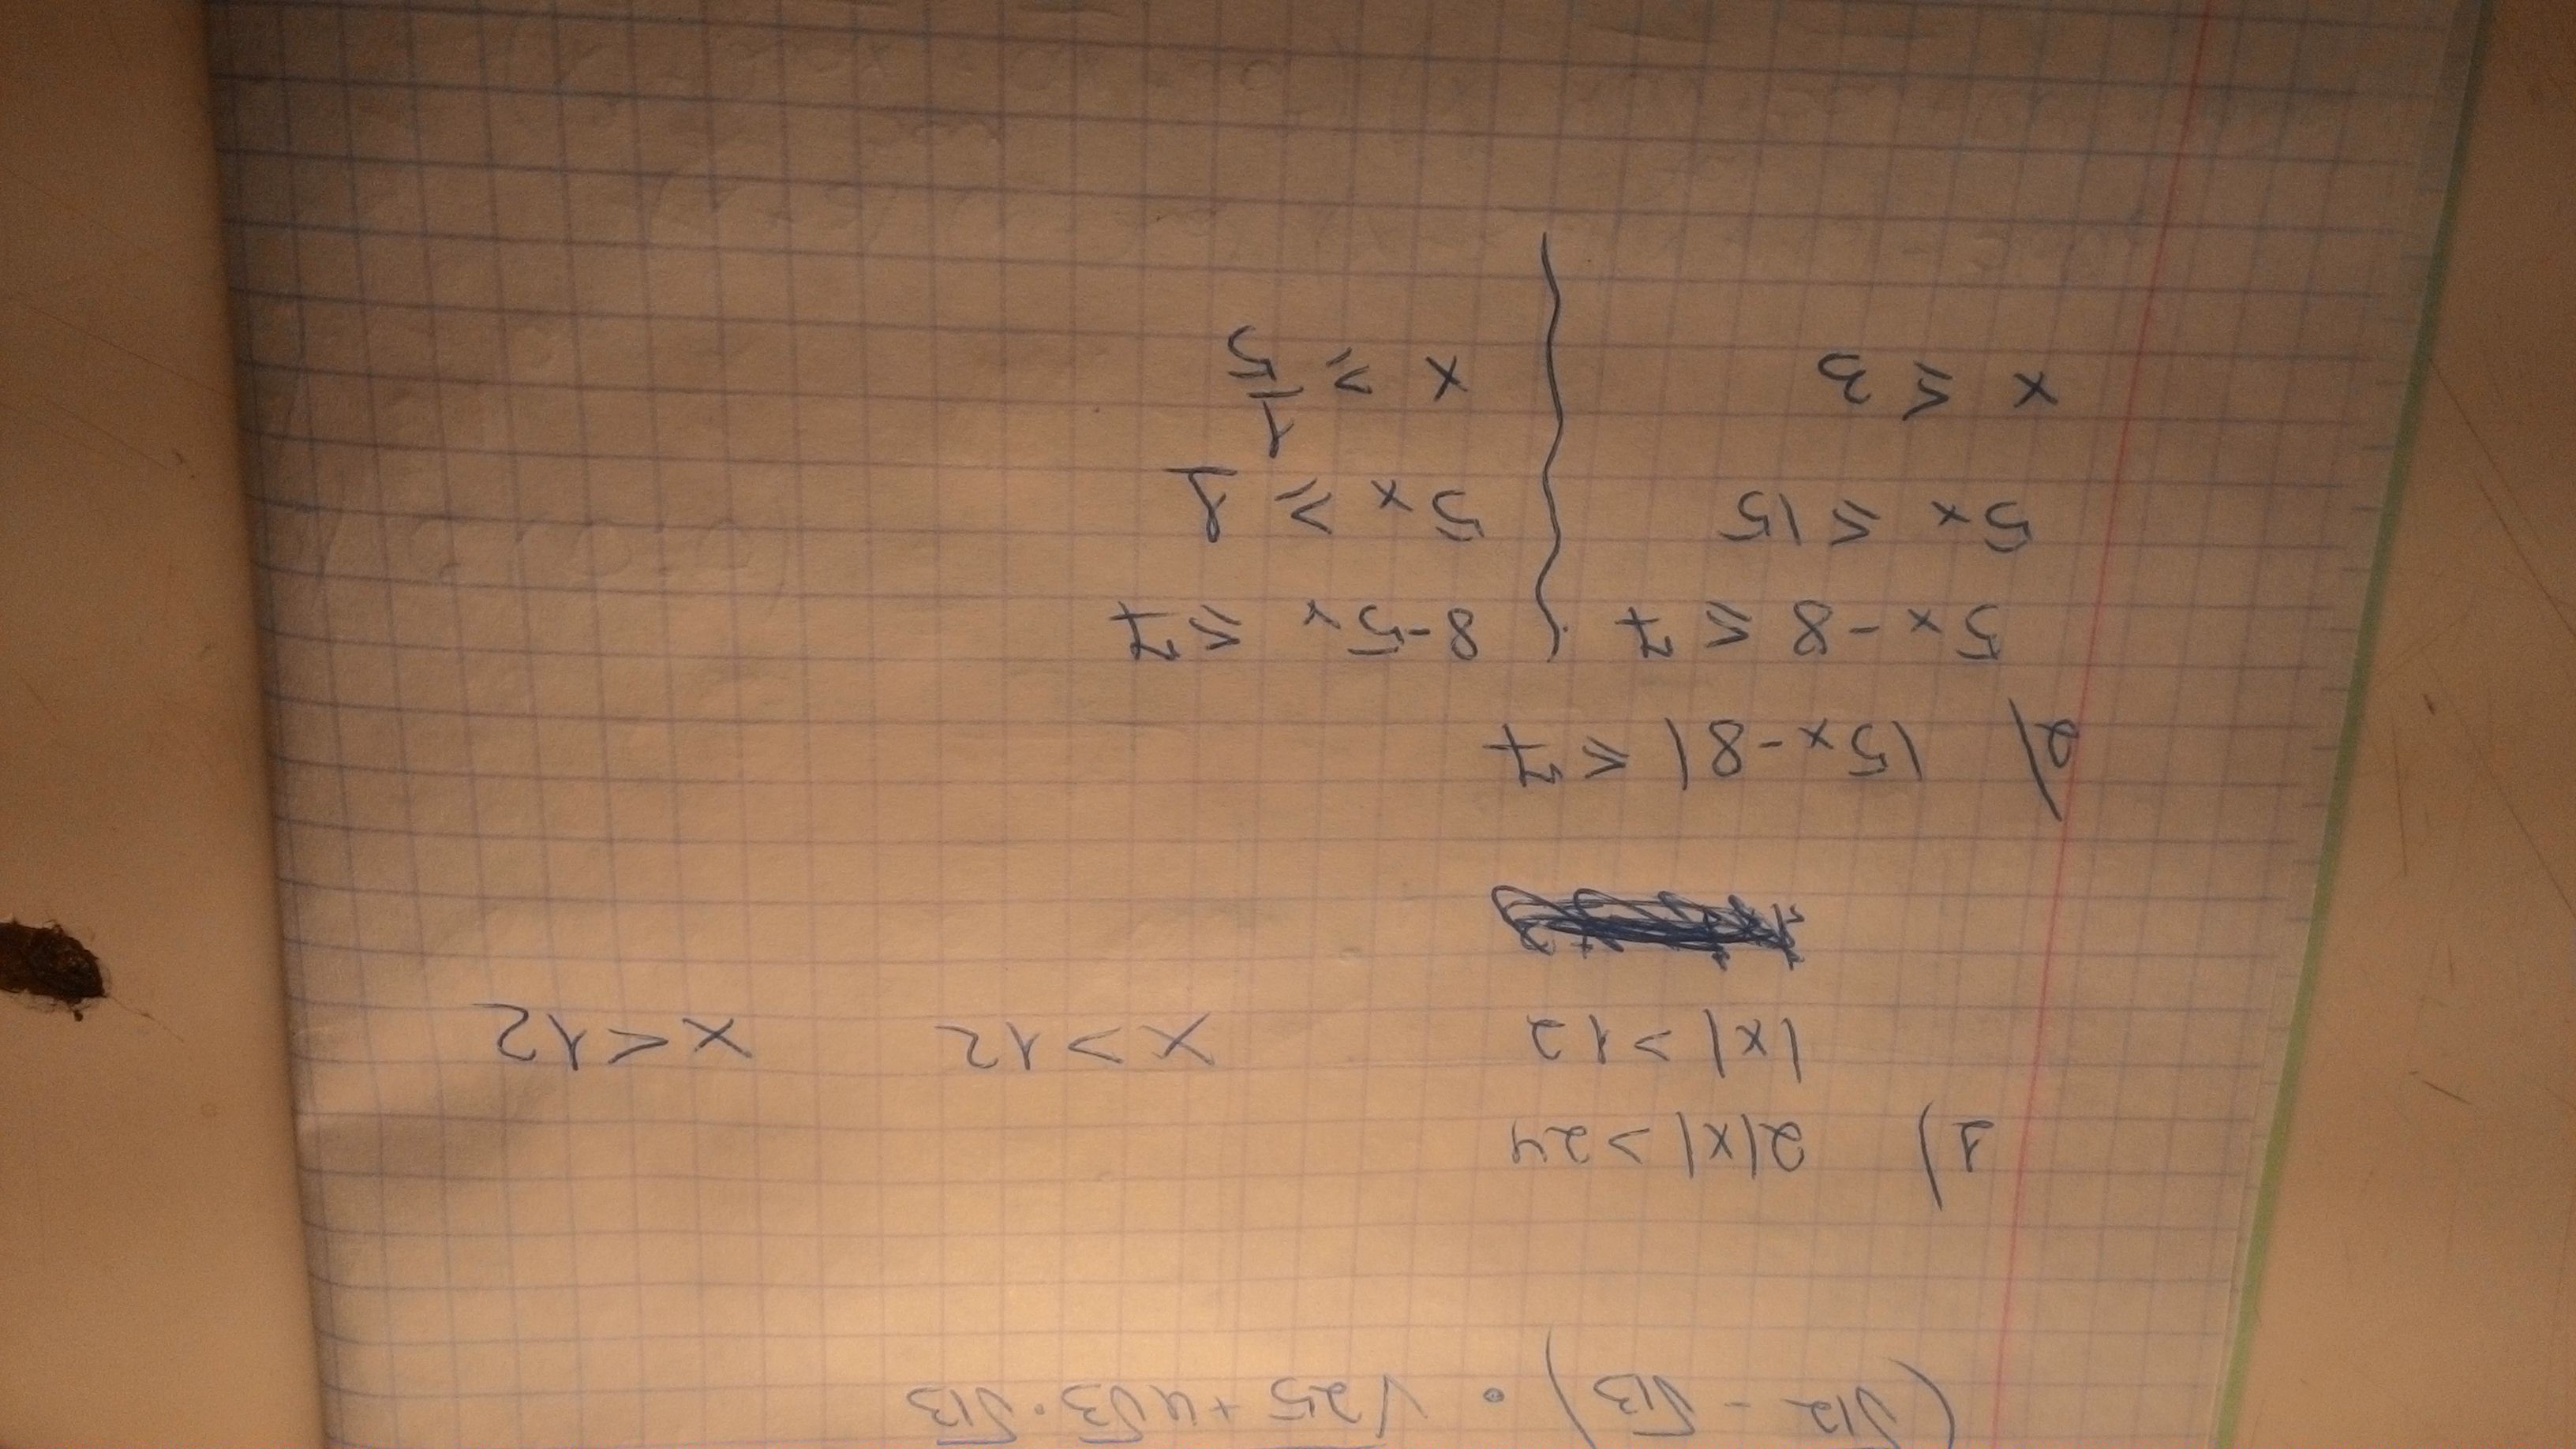 (√12 - √13) · √25 + 4√3·√13
1) 2|x| > 24
|x| > 12 x > 12 x < 12
2) |5x-8| ≤ 7
5x-8 ≤ 7 8-5x ≤ 7
5x ≤ 15 5x ≥ 1
x ≤ 3 x ≥ 1/5